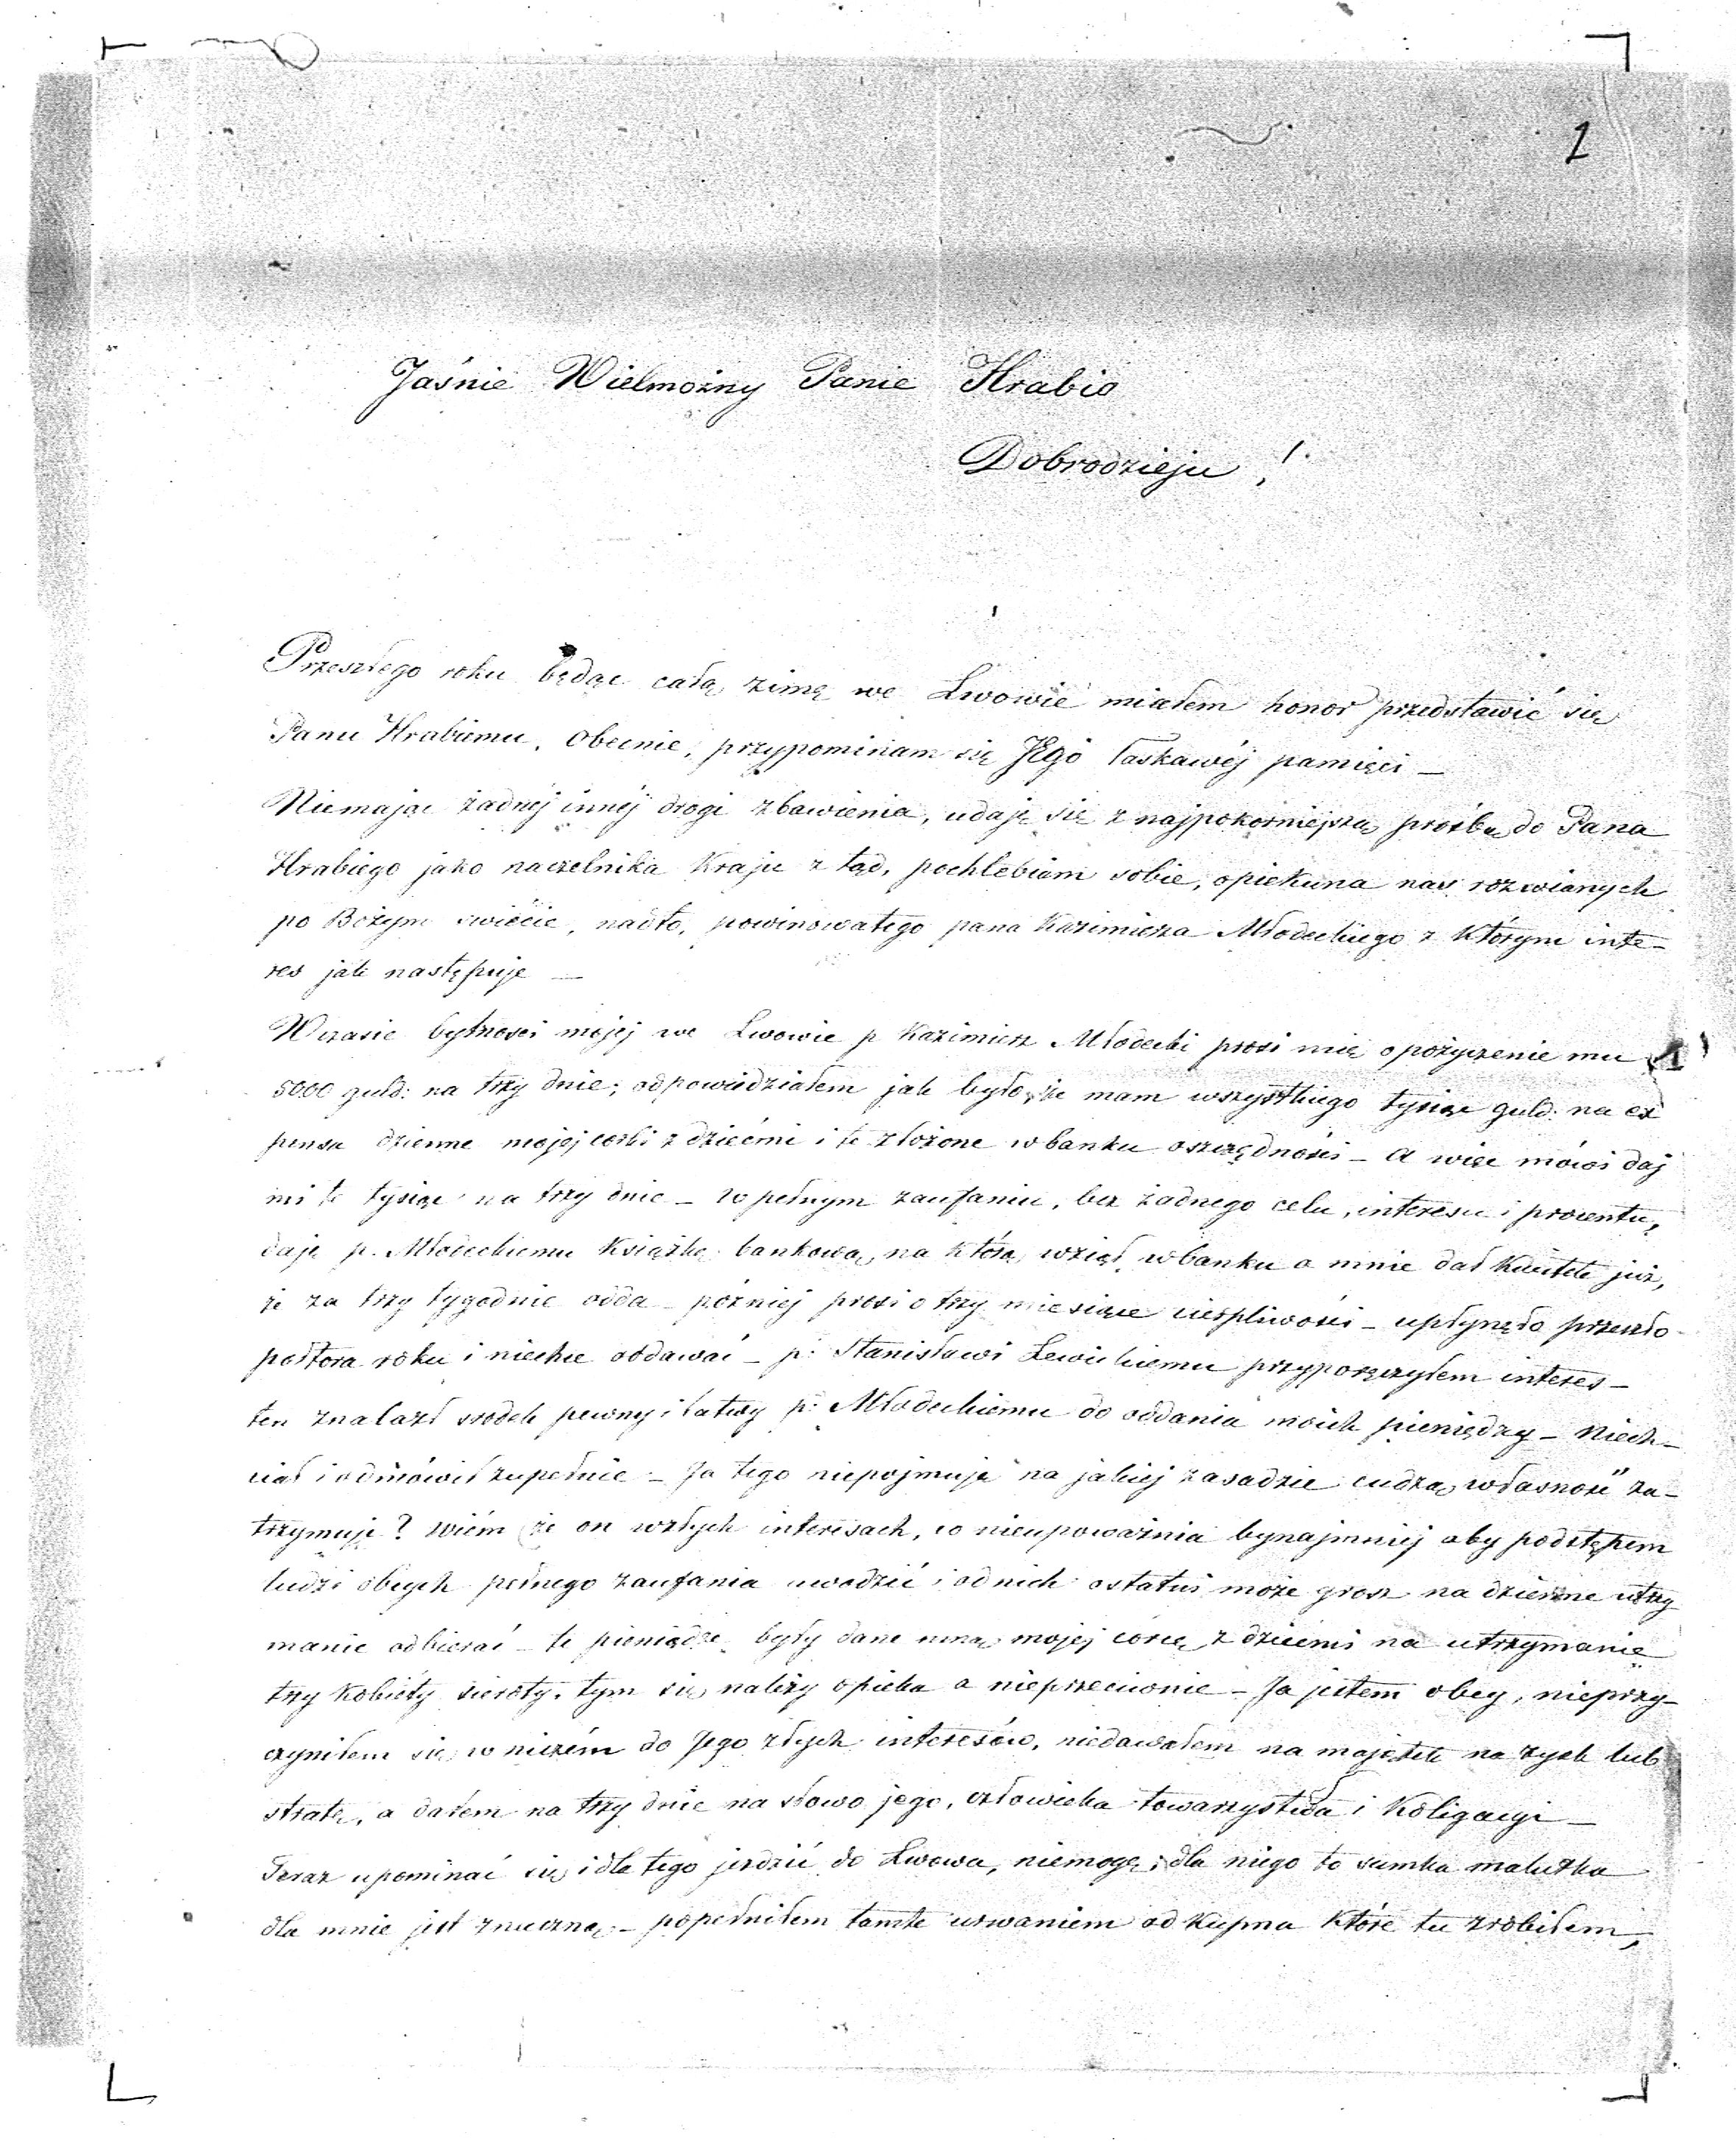 1
Jaśnie Wielmożny Panie Hrabio
Dobrodzieju !
Przeszłego roku będąc całą zimę we Lwowie miałem honor przedstawić się
Panu Hrabiemu, Obecnie, przypominam się Jego łaskawéj pamięci —
Niemając żadnéj innéj drogi zbawienia, udaję się z najpokorniejszą prośbą do Pana
Hrabiego jako naczelnika Kraju z tąd, pochlebiam sobie, opiekuna nas rozwianych
po Bożym świécie, nadto, powinowatego pana Kazimierza Młodeckiego z którym inte-
res jak następuje —
Wczasie bytności mojej we Lwowie p Kazimierz Młodecki prosi mię o pożyczenie mu
5000 guld: na trzy dnie; odpowiedziałem jak było, że mam wszystkiego tysiąc guld: na ex
pensa dzienne mojej corki z dziećmi i te złożone w banku oszczędności — A więc mówi daj
mi te tysiąc na trzy dnie — w pełnym zaufaniu, bez żadnego celu, interesu i procentu,
daję p. Młodeckiemu Książkę bankową, na którą wziął w banku a mnie dał Kwitek już,
że za trzy tygodnie odda — poźniej prosi o trzy miesiące cierpliwości — upłynęło przeszło
połtora roku i niechce oddawać — p: Stanisławi Lewickiemu przyporęczyłem interes —
ten znalazł srodek pewny i łatwy p: Młodeckiemu do oddania moich pieniędzy — Niech-
ciał i odmówił zupełnie — Ja tego niepojmuję na jakiej zasadzie cudzą własność za-
trzymuje? wiém że on wzłych interesach, co nieupoważnia bynajmniej aby podstępem
ludzi obcych pełnego zaufania uwodzić i od nich ostatni może grosz na dzienne utrzy
manie odbierać — te pieniądze były dane mną mojej córce z dziecmi na utrzymanie
trzy kobiéty sieroty, tym się należy opieka a nieprzeciwnie — Ja jestem obcy, nieprzy-
czyniłem się w niczém do Jego złych interesów, niedawałem na majątek na zysk lub
stratę, a dałem na trzy dnie na słowo jego, człowieka towarzystwa i Koligacyi —
Teraz upominać się i dla tego jezdzić do Lwowa, niemogę; dla niego to sumka malutka
dla mnie jest znaczną — popełniłem tamte urwaniem od Kupna które tu zrobiłem,